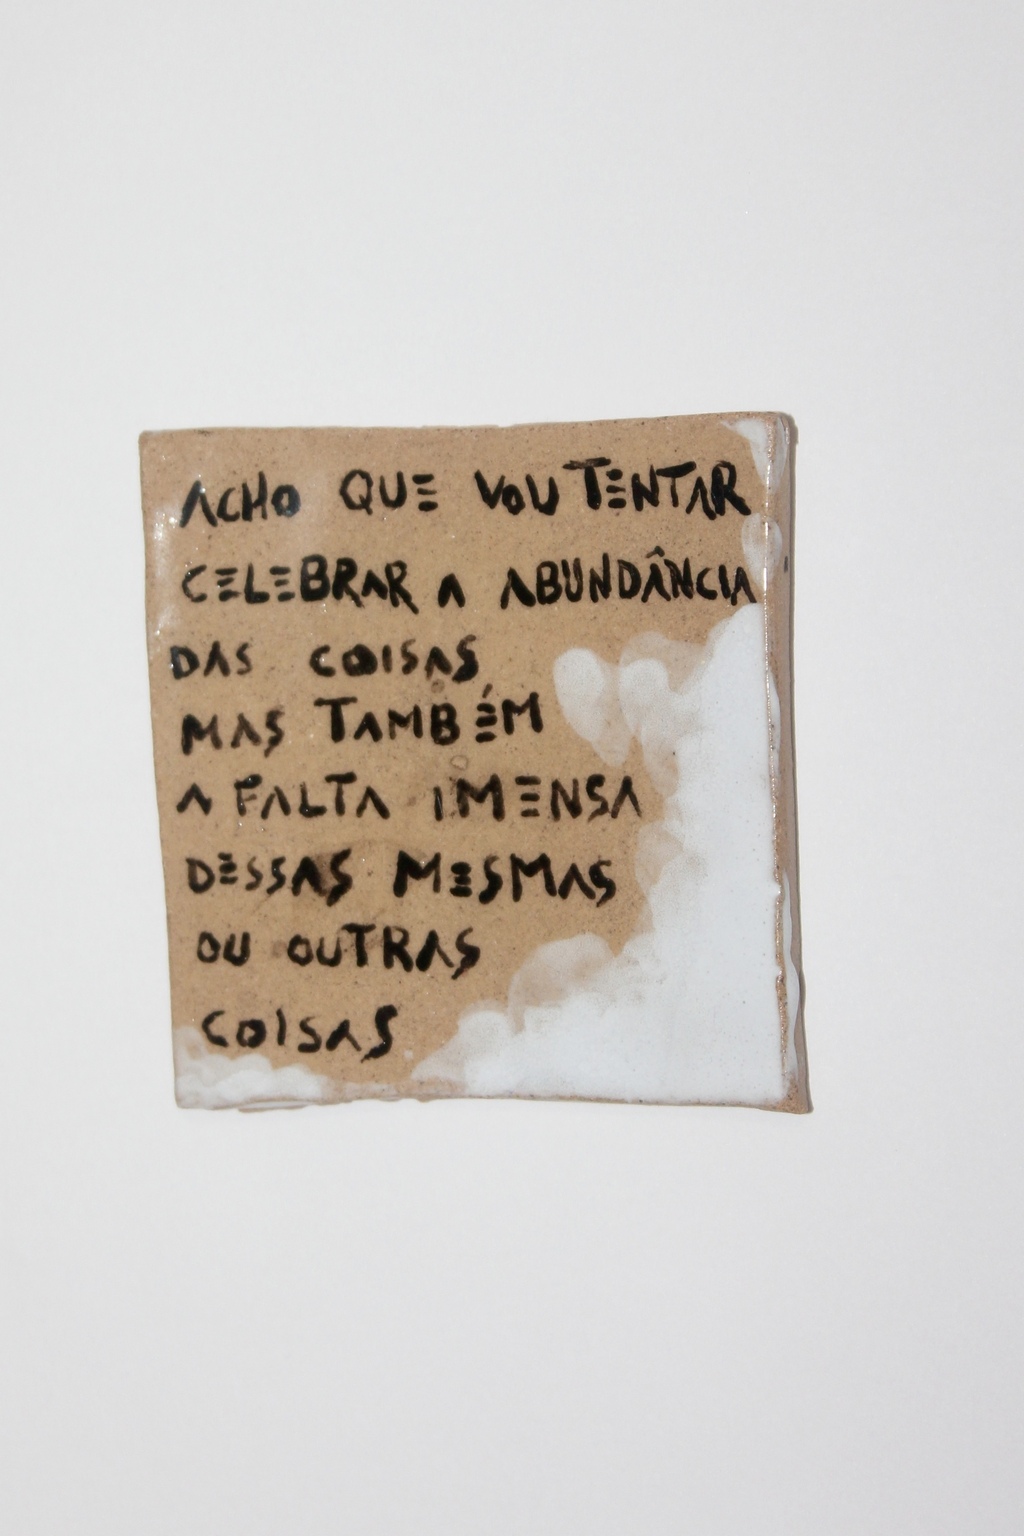 ACHO QUE VOU TENTAR
CELEBRAR A ABUNDÂNCIA
DAS COISAS
MAS TAMBÉM
A FALTA IMENSA
DESSAS MESMAS
OU OUTRAS
COISAS